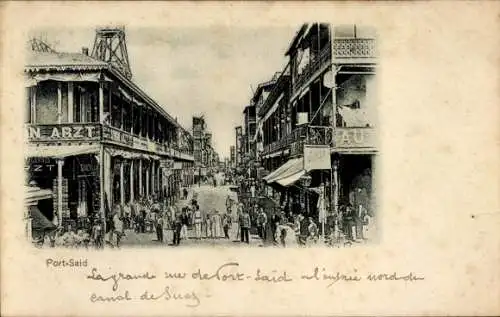 N ARZT
AU
Port-Said
La grande rue de Port-Saïd à l'entrée nord du
canal de Suez